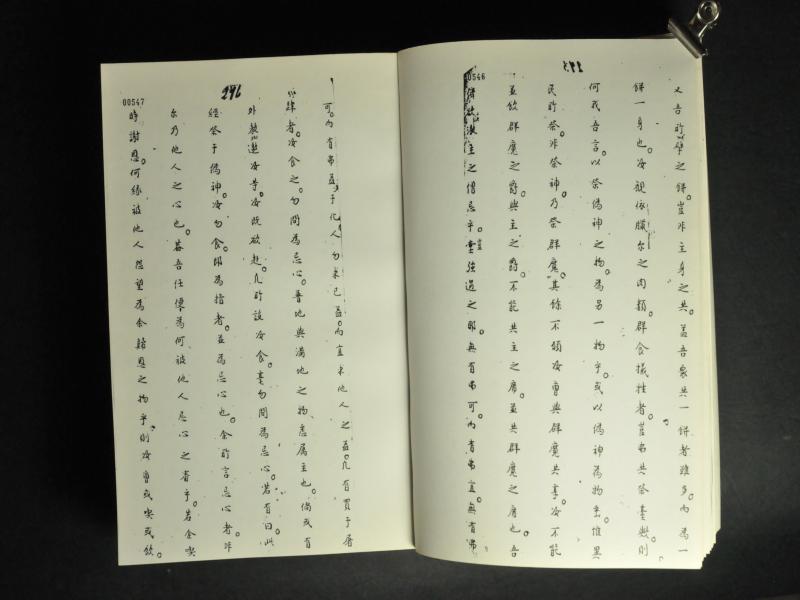 又吾所擘之餅。豈非主身之共。葢吾衆共一餅者雖多。內為一
餅一身也。汝視依臘尔之肉類。群食犧牲者。豈弗共祭臺歟。則
何我吾言。以祭偽神之物。為另一物乎。或以偽神為物乎。惟異
民所祭。非祭神。乃祭群魔。其餘不願汝曹與群魔共事。汝不能
並飲群魔之爵。與主之爵。不能共主之席。並共群魔之席也。吾
儕欲激主之憎忌乎。豈強過之耶。無有弗可。內有弗宜。無有弗
00546
可。內有弗益于化人。勿求己益。內宜求他人之益。凡有買于屠
以肆者。汝食之。勿問為忌心。葢地與滿地之物悉属主也。倘或有
外教邀汝等。汝既欲赴。凡所設汝食。臺勿問為忌心。若有曰此
經祭于偽神。汝勿食。因為指者。並為忌心也。余所言忌心者。非
尔乃他人之心也。葢吾任傳為何被他人忌心之審乎。若余喫
時謝恩。何緣被他人怨望。為余謝恩之物乎。則汝曹或喫或飲。
296
00547